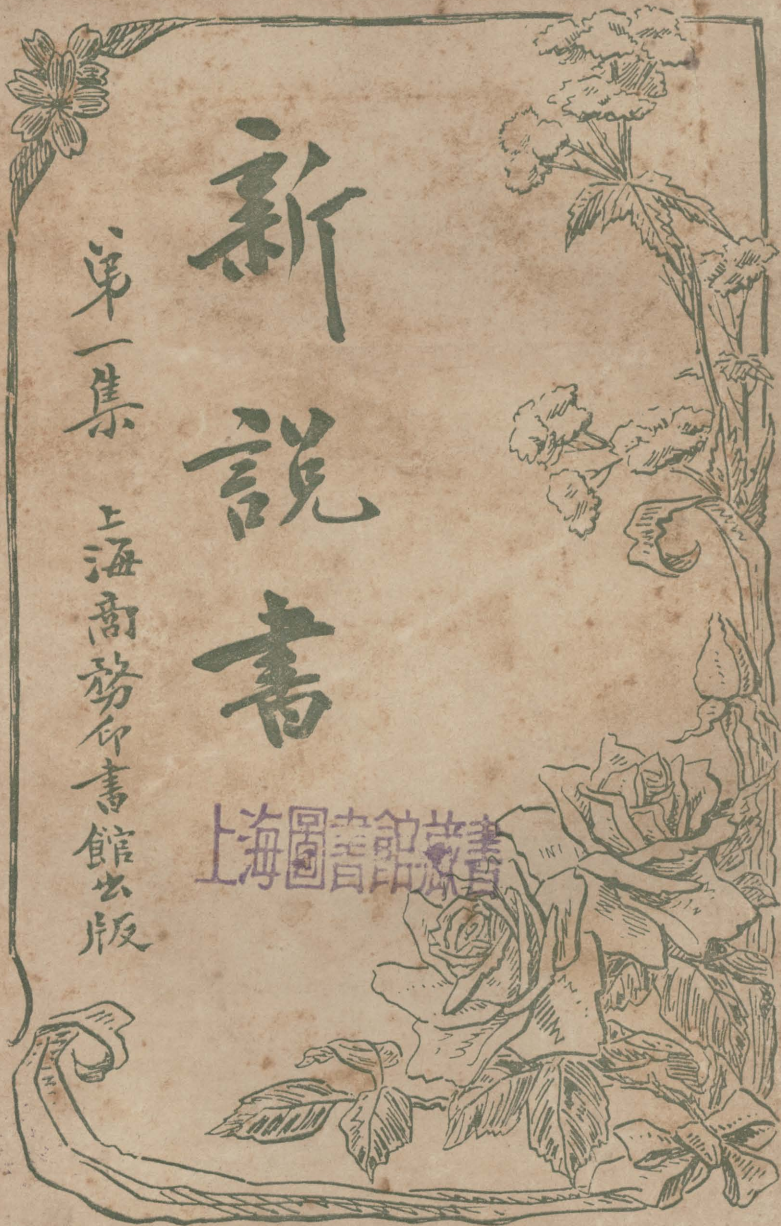 新說書
第一集 上海商務印書館出版
上海圖書館藏書